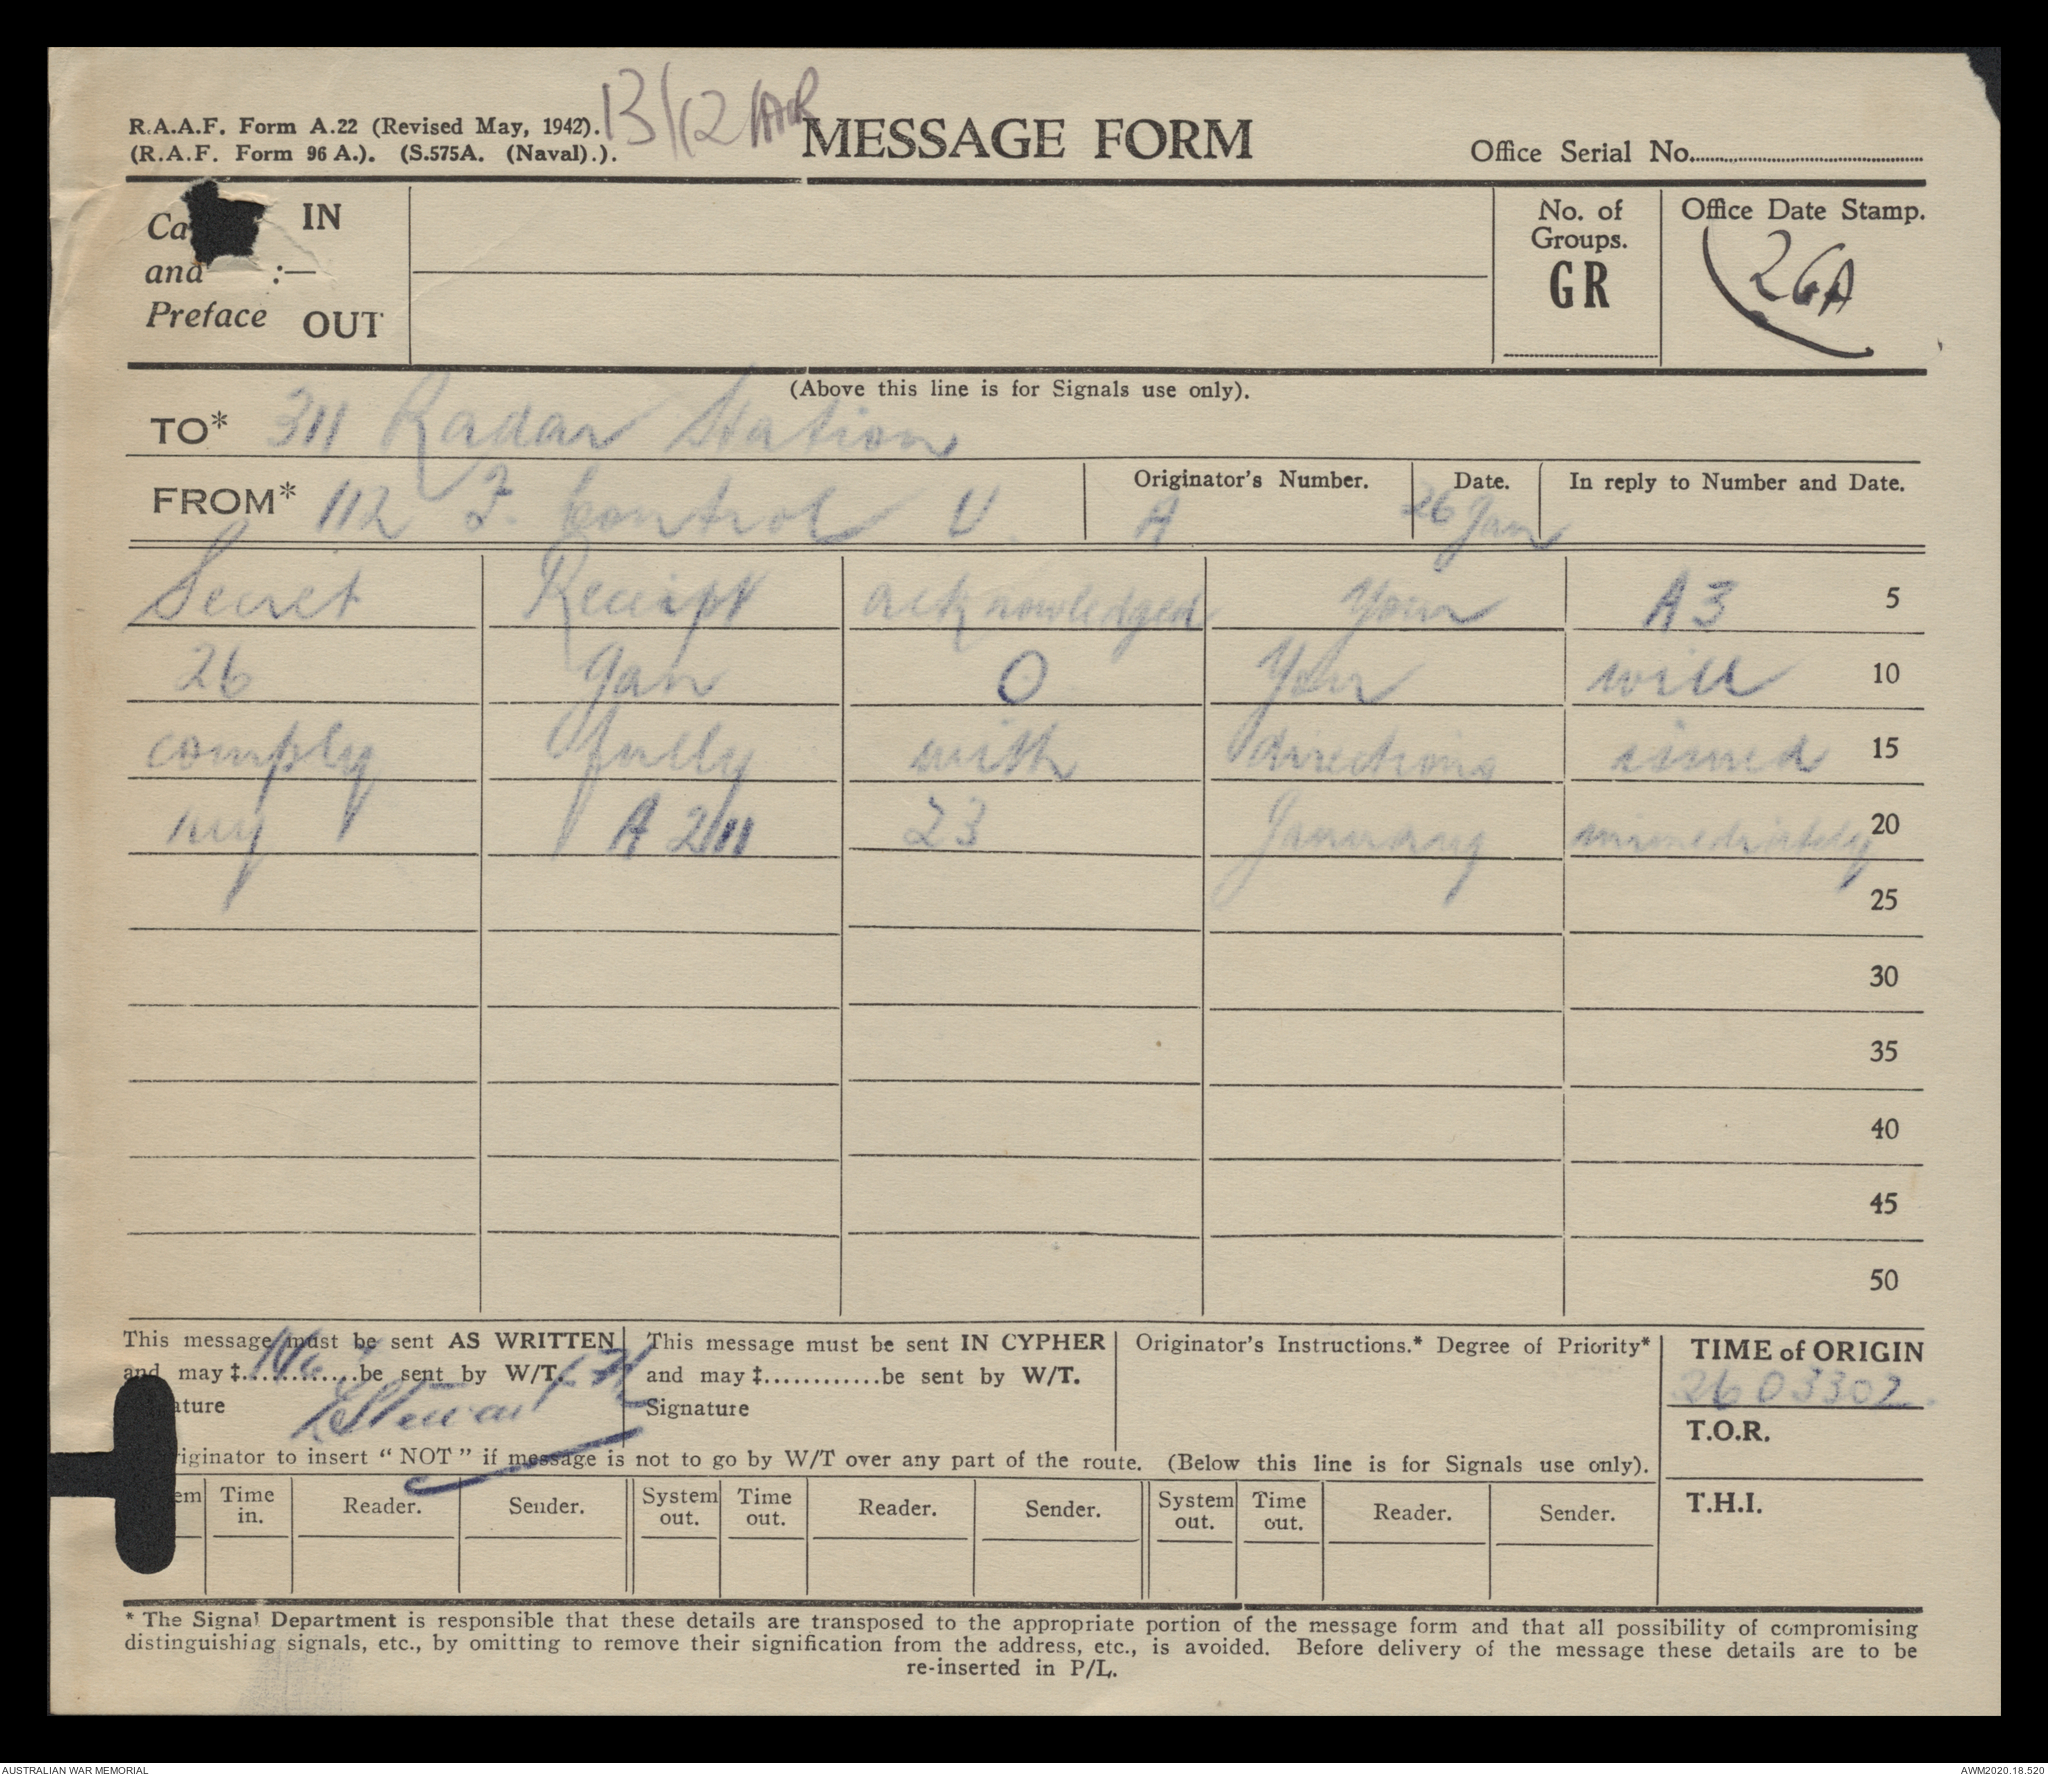 R.A.A.F. Form A.22 (Revised May, 1942).
(R.A.F. Form 96 A.). (S.575A. (Naval).).
13/12/AIR
MESSAGE FORM
Office Serial No.
Ca
and :—
Preface
IN
OUT
No. of
Groups.
GR
Office Date Stamp.
26A
(Above this line is for Signals use only).
TO* 311 Radar Station
FROM* 112 F. Control U.
Originator's Number. A
Date. 26 Jan
In reply to Number and Date.
Secret Receipt acknowledged Your A3 5
26 Jan O You will 10
comply fully with directions issued 15
my A 211 23 January immediately 20
25
30
35
40
45
50
This message must be sent AS WRITTEN
and may ‡............be sent by W/T.
ature
This message must be sent IN CYPHER
and may ‡............be sent by W/T.
Signature
Originator's Instructions.* Degree of Priority*
TIME of ORIGIN
260330Z
T.O.R.
T.H.I.
riginator to insert “ NOT ” if message is not to go by W/T over any part of the route. (Below this line is for Signals use only).
em Time in. Reader. Sender. System out. Time out. Reader. Sender. System out. Time out. Reader. Sender.
* The Signal Department is responsible that these details are transposed to the appropriate portion of the message form and that all possibility of compromising
distinguishing signals, etc., by omitting to remove their signification from the address, etc., is avoided. Before delivery of the message these details are to be
re-inserted in P/L.
AUSTRALIAN WAR MEMORIAL
AWM2020.18.520